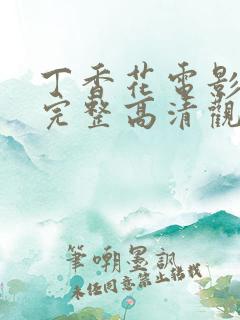 丁香花电影
完整高清觀
筆嘲墨訊
未经同意禁止轉載